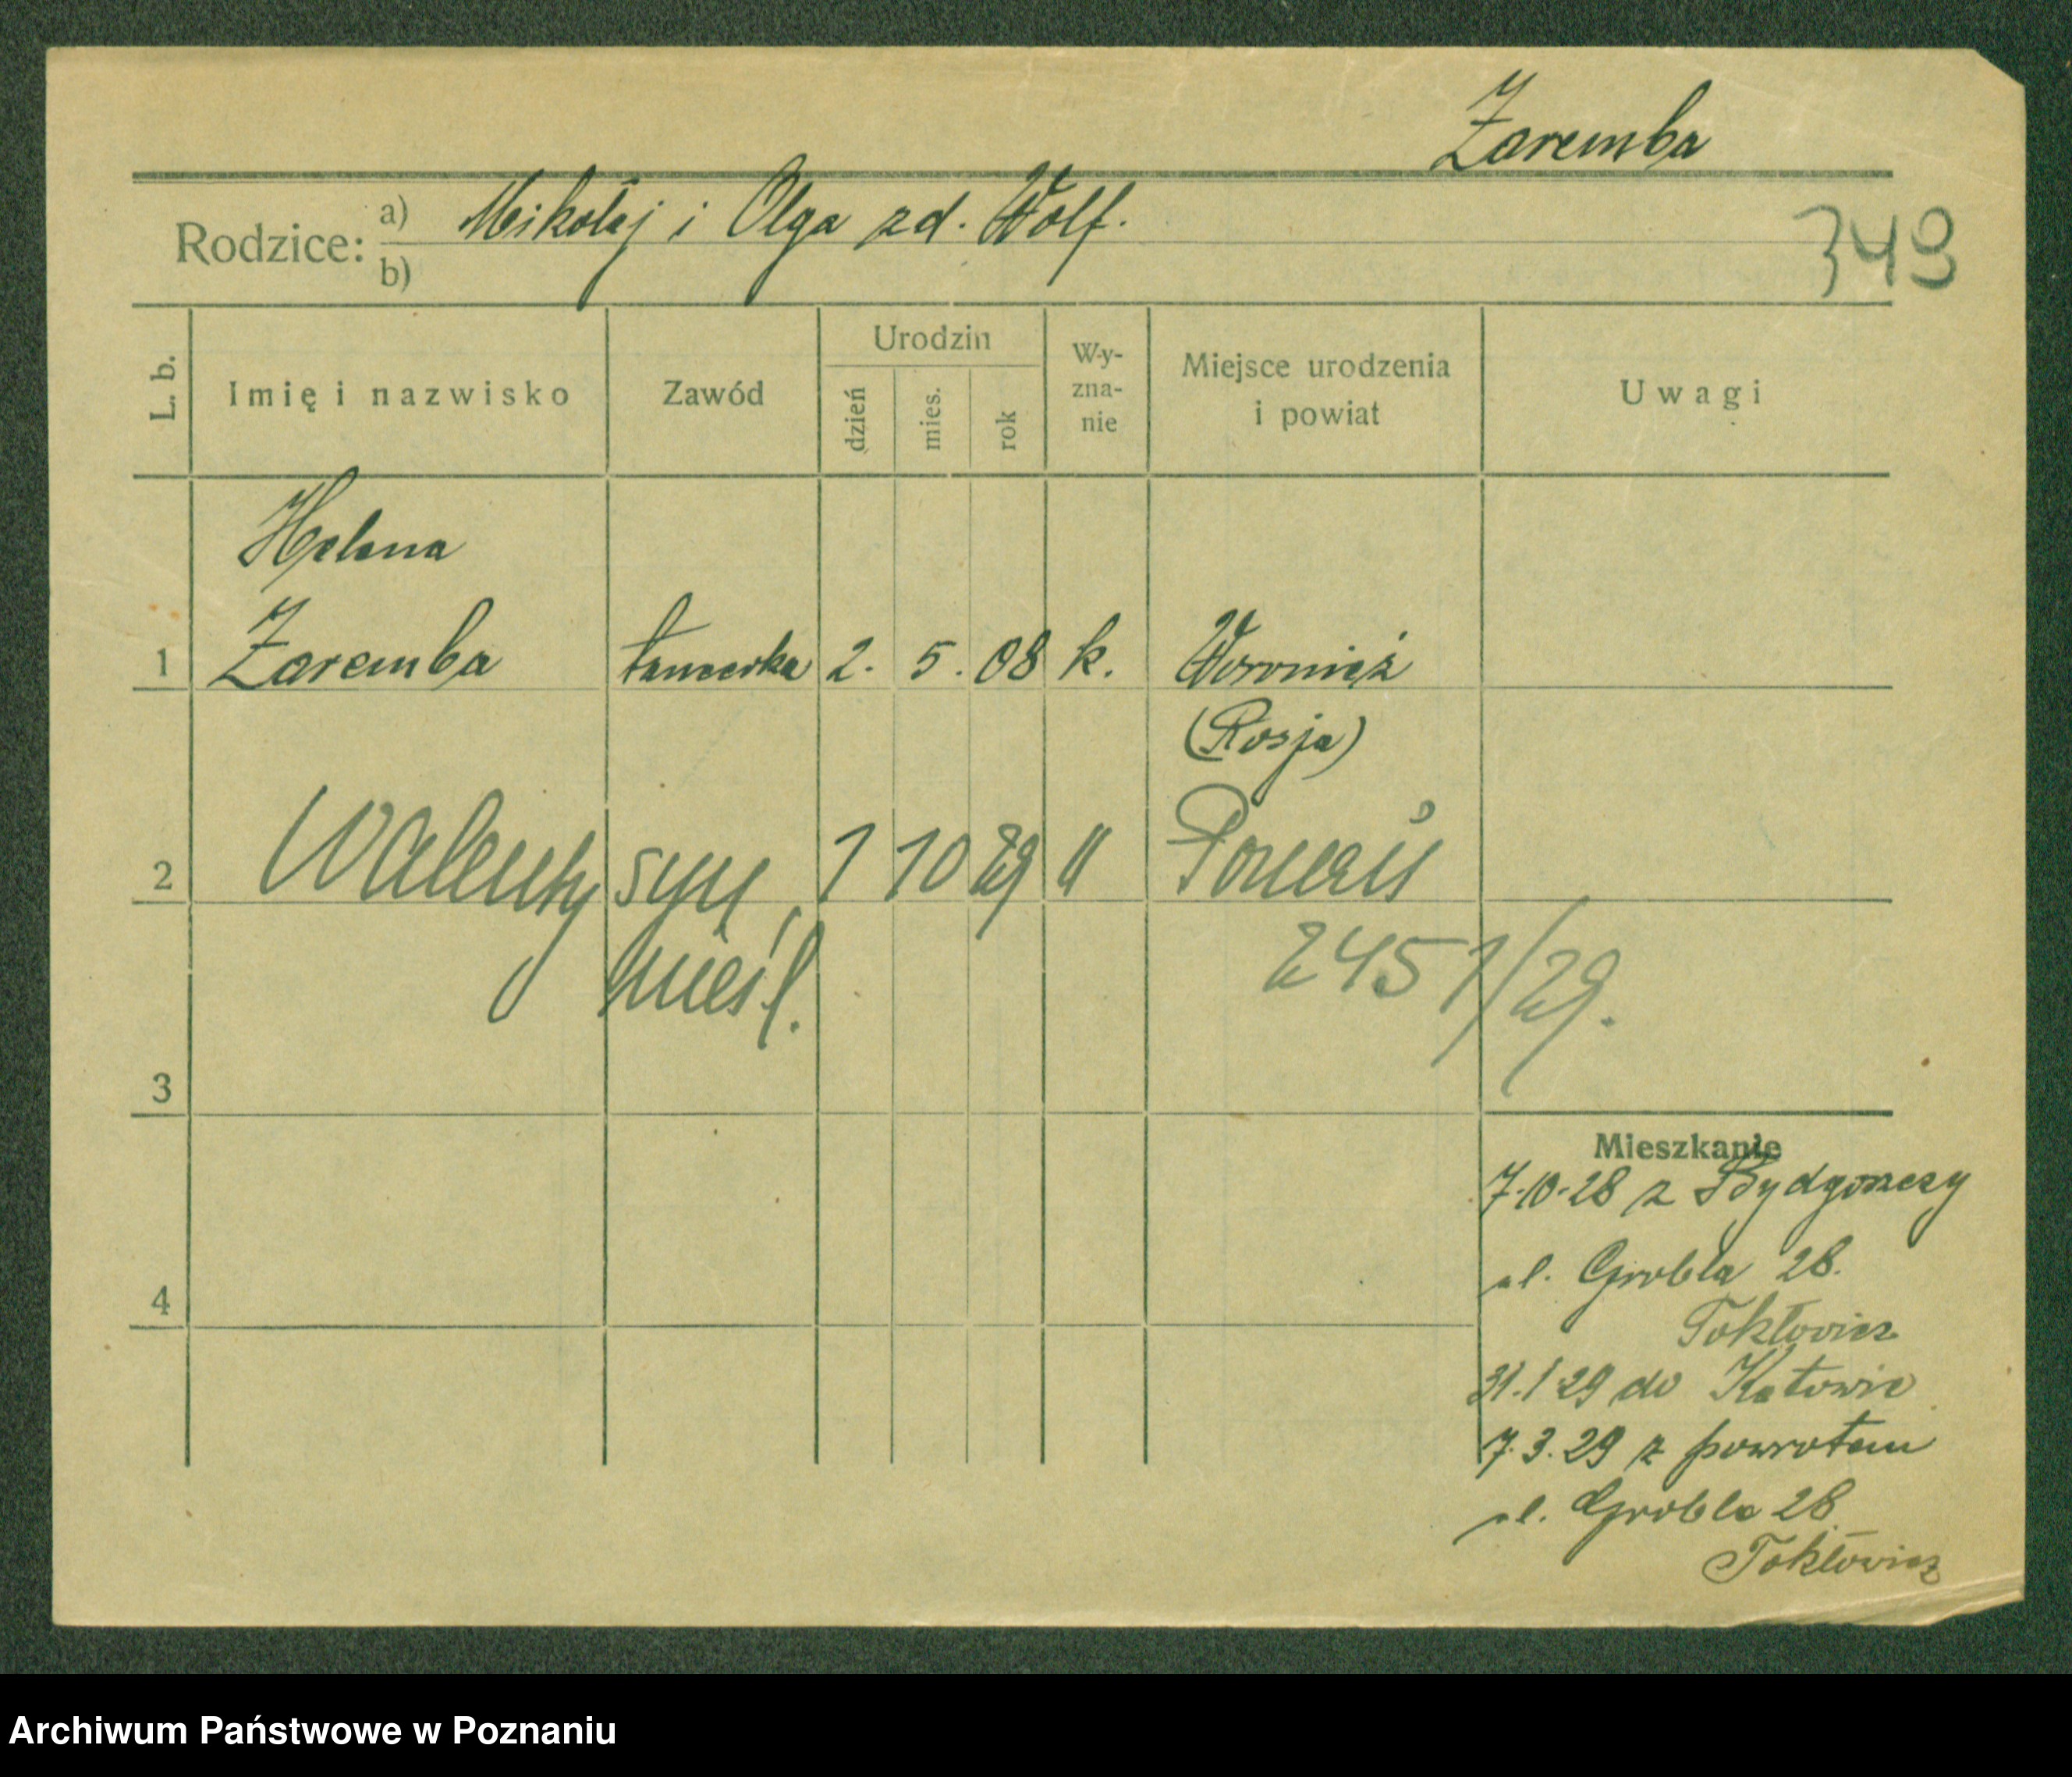 Zaremba
Rodzice: a) Mikołaj i Olga zd. Wolf.
b)
349
L. b.
Imię i nazwisko
Zawód
Urodzin
dzień
mies.
rok
Wy-
zna-
nie
Miejsce urodzenia
i powiat
Uwagi
Helena
1 Zaremba tancerka 2. 5. 08 k. Woronież
(Rosja)
2 Walenty syn 1 10 29 " Poznań
nieśl. 2451/29.
3
Mieszkanie
7-10-28 z Bydgoszczy
ul. Grobla 28.
4
Tokłowicz
31.1 29 do Katowic
7.3.29 z powrotem
ul. Grobla 28
Tokłowicz
Archiwum Państwowe w Poznaniu